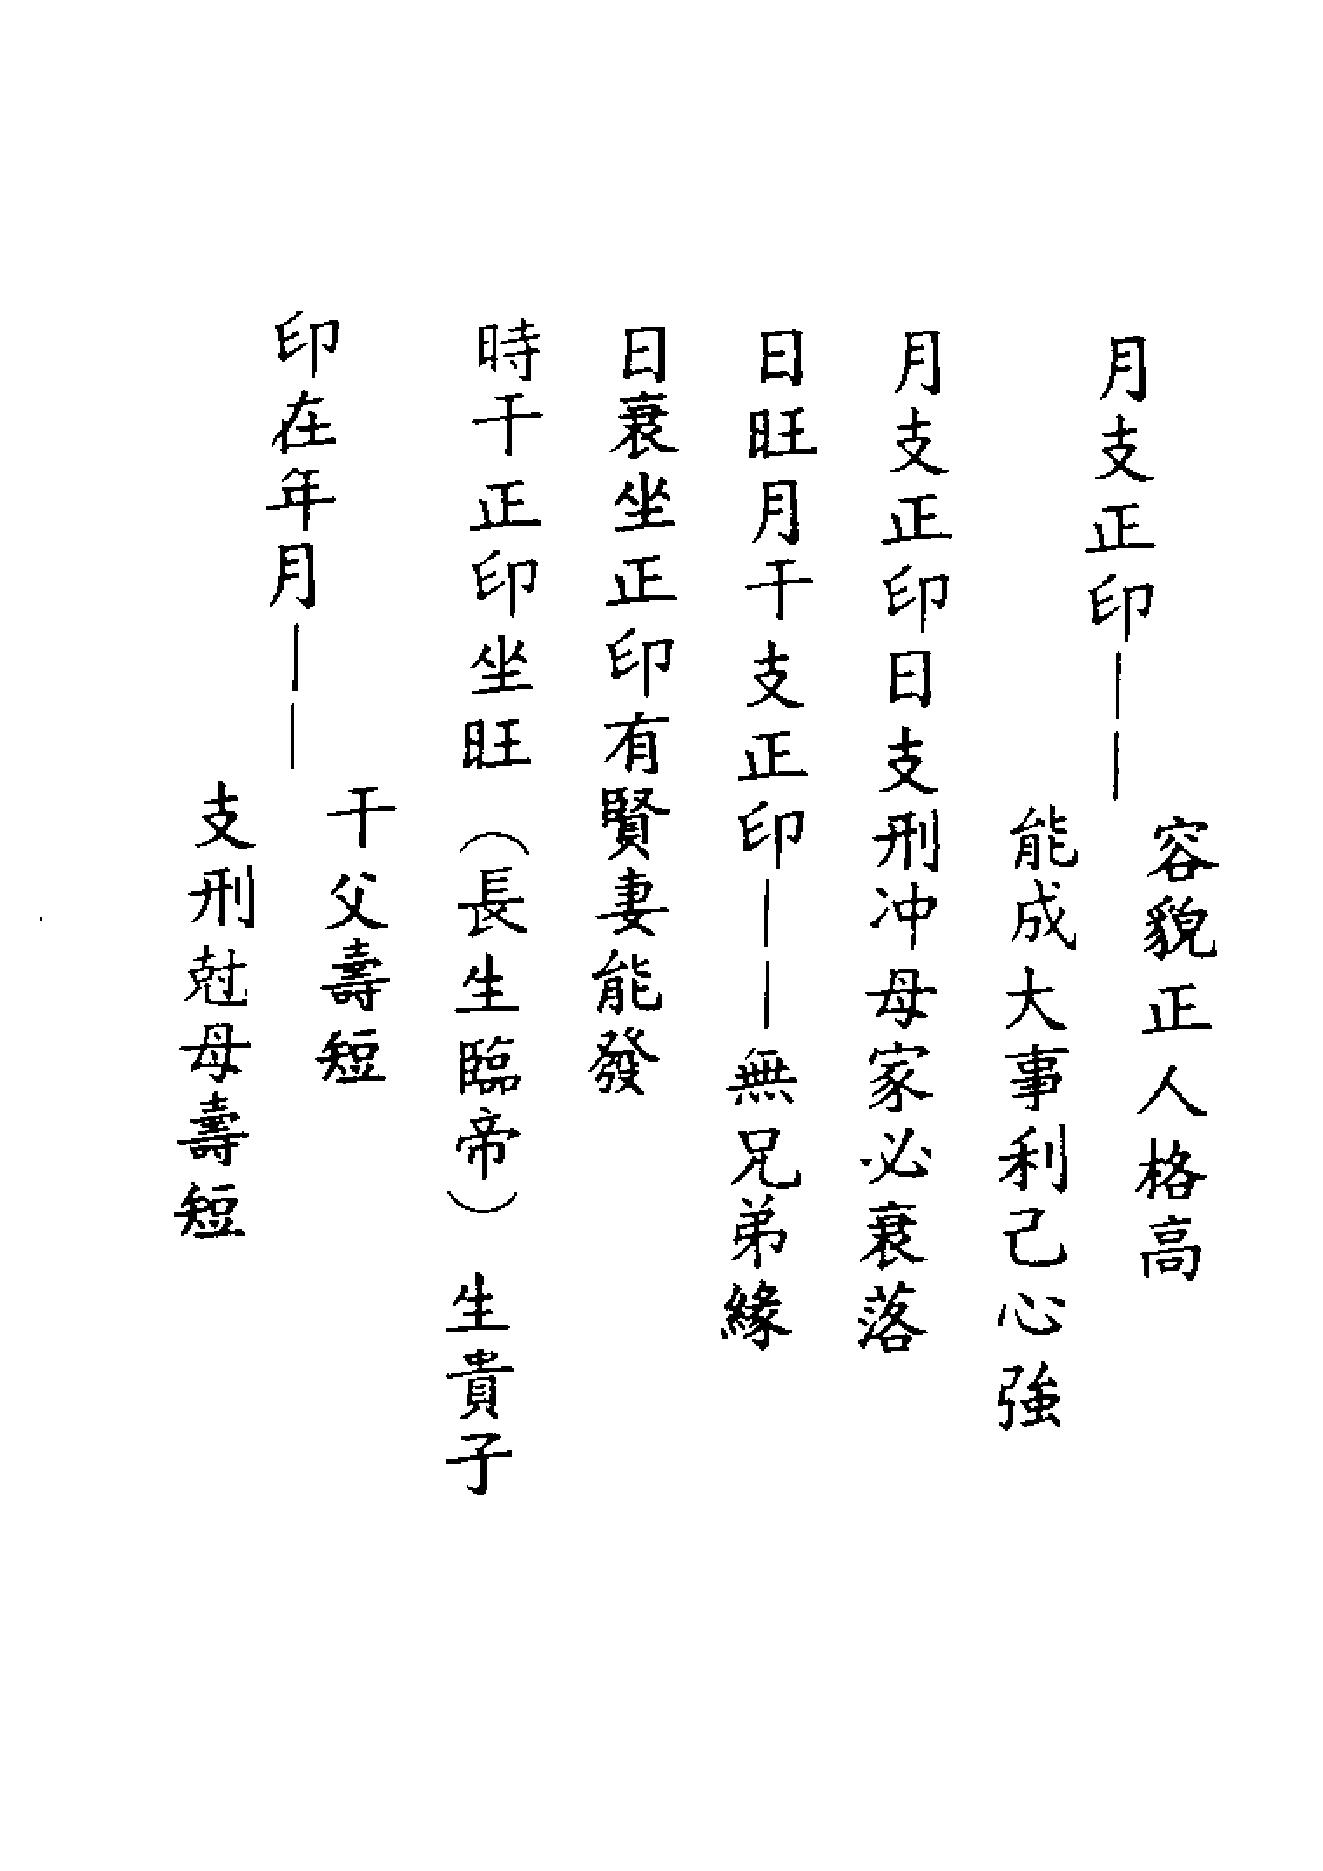 月支正印——
容貌正人格高
能成大事利己心強
月支正印日支刑冲母家必衰落
日旺月干支正印——無兄弟緣
日衰坐正印有賢妻能發
時干正印坐旺（長生臨帝）生貴子
印在年月——
干父壽短
支刑尅母壽短